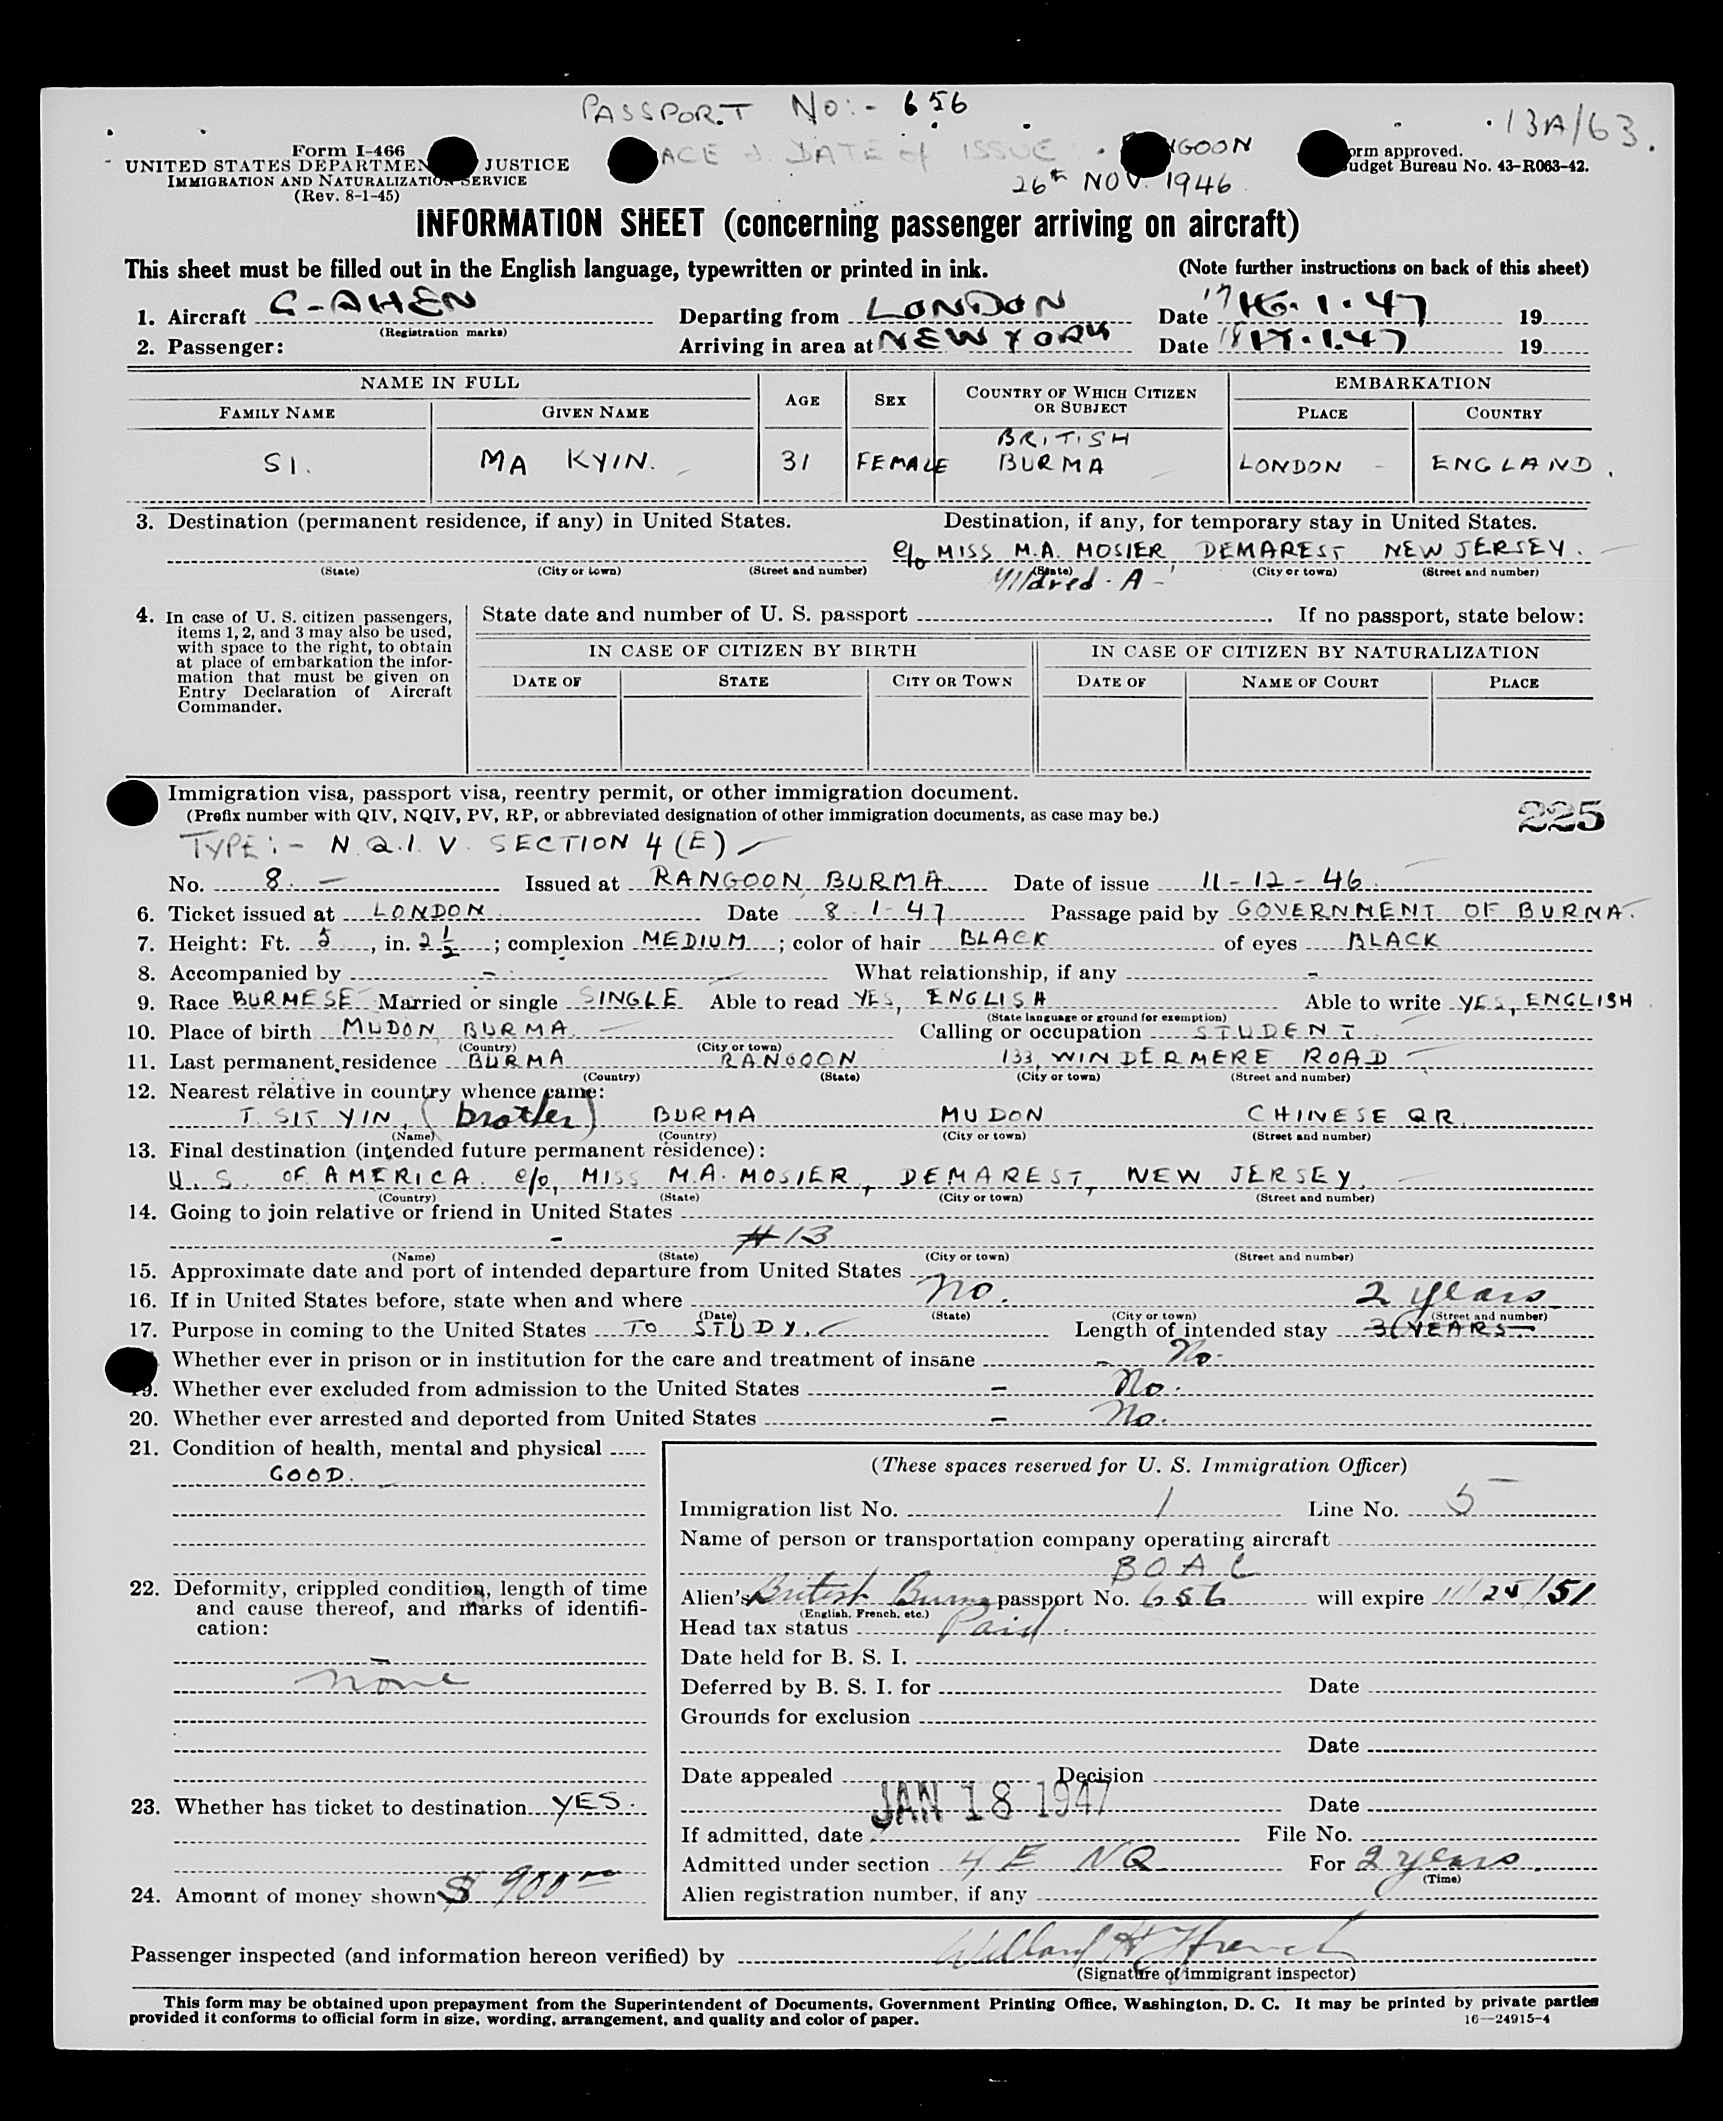 PASSPORT No:- 656
13A/63.
Form I-466
UNITED STATES DEPARTMEN JUSTICE
IMMIGRATION AND NATURALIZATION SERVICE
(Rev. 8-1-45)
ACE & DATE of ISSUE NGOON
26th NOV. 1946
orm approved.
udget Bureau No. 43-R063-42.
INFORMATION SHEET (concerning passenger arriving on aircraft)
This sheet must be filled out in the English language, typewritten or printed in ink. (Note further instructions on back of this sheet)
1. Aircraft G-AHEN Departing from LONDON Date 17 16.1.47 19
(Registration marks)
2. Passenger: Arriving in area at NEW YORK Date 18 17.1.47 19
NAME IN FULL AGE SEX COUNTRY OF WHICH CITIZEN OR SUBJECT EMBARKATION
FAMILY NAME GIVEN NAME PLACE COUNTRY
SI. MA KYIN. 31 FEMALE BRITISH BURMA LONDON - ENGLAND.
3. Destination (permanent residence, if any) in United States. Destination, if any, for temporary stay in United States.
c/o MISS M.A. MOSIER DEMAREST NEW JERSEY.
(State) (City or town) (Street and number) (State) (City or town) (Street and number)
Mildred. A -
4. In case of U. S. citizen passengers, items 1, 2, and 3 may also be used, with space to the right, to obtain at place of embarkation the information that must be given on Entry Declaration of Aircraft Commander.
State date and number of U. S. passport . If no passport, state below:
IN CASE OF CITIZEN BY BIRTH IN CASE OF CITIZEN BY NATURALIZATION
DATE OF STATE CITY OR TOWN DATE OF NAME OF COURT PLACE
Immigration visa, passport visa, reentry permit, or other immigration document.
(Prefix number with QIV, NQIV, PV, RP, or abbreviated designation of other immigration documents, as case may be.)
225
TYPE:- N.Q.I.V. SECTION 4 (E)
No. 8. - Issued at RANGOON, BURMA. Date of issue 11-12-46.
6. Ticket issued at LONDON Date 8-1-47 Passage paid by GOVERNMENT OF BURMA.
7. Height: Ft. 5, in. 2 1/2; complexion MEDIUM; color of hair BLACK of eyes BLACK
8. Accompanied by - What relationship, if any -
9. Race BURMESE Married or single SINGLE Able to read YES, ENGLISH Able to write YES, ENGLISH
(State language or ground for exemption)
10. Place of birth MUDON, BURMA. Calling or occupation STUDENT.
(Country) (City or town)
11. Last permanent residence BURMA RANGOON 133, WINDERMERE ROAD
(Country) (State) (City or town) (Street and number)
12. Nearest relative in country whence came:
T. SIT YIN, (brother) BURMA MUDON CHINESE QR.
(Name) (Country) (City or town) (Street and number)
13. Final destination (intended future permanent residence):
U.S. OF AMERICA. c/o, MISS M.A. MOSIER, DEMAREST, NEW JERSEY.
(Country) (State) (City or town) (Street and number)
14. Going to join relative or friend in United States
- #13
(Name) (State) (City or town) (Street and number)
15. Approximate date and port of intended departure from United States
16. If in United States before, state when and where No. 2 years
(Date) (State) (City or town) (Street and number)
17. Purpose in coming to the United States TO STUDY. Length of intended stay 3 YEARS
Whether ever in prison or in institution for the care and treatment of insane - No.
19. Whether ever excluded from admission to the United States - No.
20. Whether ever arrested and deported from United States - No.
21. Condition of health, mental and physical
GOOD.
22. Deformity, crippled condition, length of time and cause thereof, and marks of identification:
-
none
23. Whether has ticket to destination YES.
24. Amount of money shown $ 900 00
(These spaces reserved for U. S. Immigration Officer)
Immigration list No. 1 Line No. 5
Name of person or transportation company operating aircraft
BOAC
Alien's British Burma passport No. 656 will expire 11/25/51
(English, French, etc.)
Head tax status Paid.
Date held for B. S. I.
Deferred by B. S. I. for Date
Grounds for exclusion
Date
Date appealed Decision
JAN 18 1947 Date
If admitted, date File No.
Admitted under section 4 E NQ For 2 years.
(Time)
Alien registration number, if any
Passenger inspected (and information hereon verified) by Willard H French
(Signature of immigrant inspector)
This form may be obtained upon prepayment from the Superintendent of Documents, Government Printing Office, Washington, D. C. It may be printed by private parties
provided it conforms to official form in size, wording, arrangement, and quality and color of paper. 16—24915-4